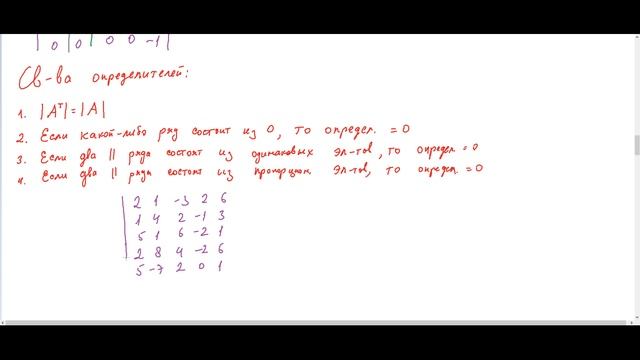 0 0 0 0 -1
Св-ва определителей:
1. |Aᵀ|=|A|
2. Если какой-либо ряд состоит из 0, то опредл. = 0
3. Если два || ряда состоят из одинаковых эл-тов, то определ. = 0
4. Если два || ряда состоят из пропорцион. эл-тов, то определ. = 0
2 1 -3 2 6
1 4 2 -1 3
5 1 6 -2 1
2 8 4 -2 6
5 -7 2 0 1